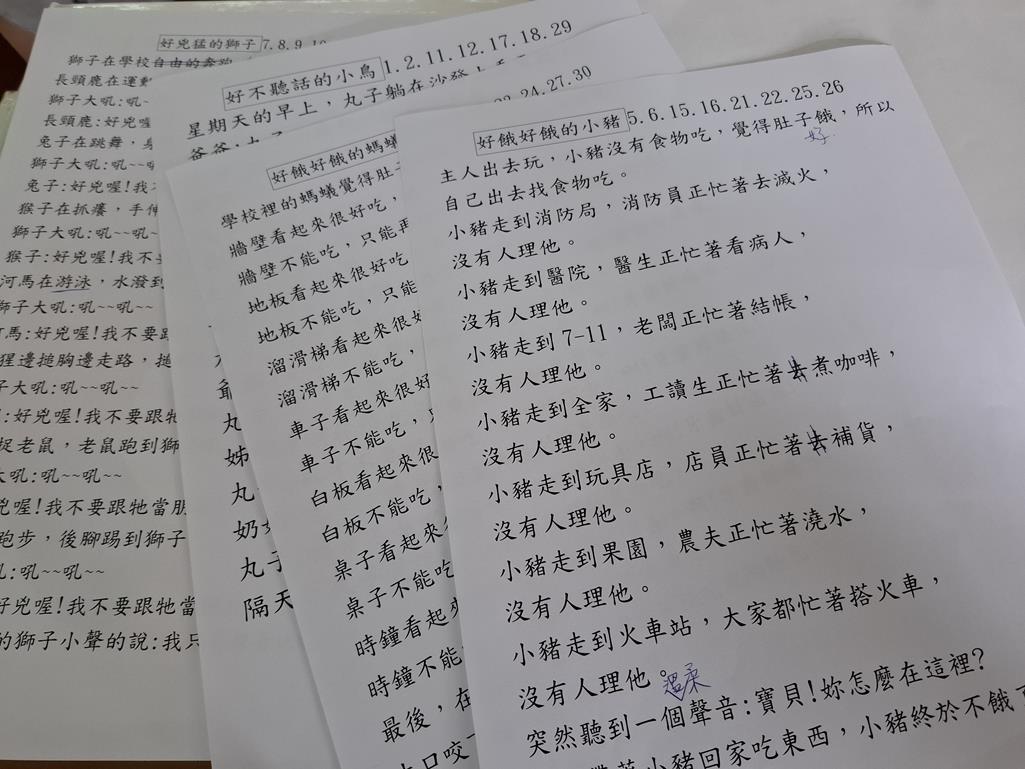 好兇猛的獅子 7.8.9.10
獅子在學校自由的奔跑
長頸鹿在運動
獅子大吼:吼~
長頸鹿:好兇喔
兔子在跳舞，身
獅子大吼:吼~~
兔子:好兇喔!我
猴子在抓癢，手伸
獅子大吼:吼~~吼~
猴子:好兇喔!我不
河馬在游泳，水潑到
獅子大吼:吼~~吼~~
河馬:好兇喔!我不要跟
猩邊搥胸邊走路，搥
子大吼:吼~~吼~~
:好兇喔!我不要跟牠
捉老鼠，老鼠跑到獅
大吼:吼~~吼~~
兇喔!我不要跟牠當朋
跑步，後腳踢到獅子
吼:吼~~吼~~
好兇喔!我不要跟牠當
的獅子小聲的說:我只
好不聽話的小鳥 1.2.11.12.17.18.29
星期天的早上，丸子躺在沙發上看
爸爸:丸子
爺
丸
姊
丸
奶
丸子
隔天
好餓好餓的螞蟻 23.24.27.30
學校裡的螞蟻覺得肚子
牆壁看起來很好吃，
牆壁不能吃，只能再
地板看起來很好吃
地板不能吃，只能
溜滑梯看起來很好
溜滑梯不能吃，
車子看起來很好
車子不能吃，只
白板看起來很
白板不能吃，
桌子看起來
桌子不能吃
時鐘看起來
時鐘不能
最後，在
大口咬一
好餓好餓的小豬 5.6.15.16.21.22.25.26
主人出去玩，小豬沒有食物吃，覺得肚子餓，所以
好
自己出去找食物吃。
小豬走到消防局，消防員正忙著去滅火，
沒有人理他。
小豬走到醫院，醫生正忙著看病人，
沒有人理他。
小豬走到 7-11，老闆正忙著結帳，
沒有人理他。
小豬走到全家，工讀生正忙著去煮咖啡，
沒有人理他。
小豬走到玩具店，店員正忙著去補貨，
沒有人理他。
小豬走到果園，農夫正忙著澆水，
沒有人理他。
小豬走到火車站，大家都忙著搭火車，
沒有人理他。
溫柔
突然聽到一個聲音:寶貝!妳怎麼在這裡?
帶著小豬回家吃東西，小豬終於不餓了